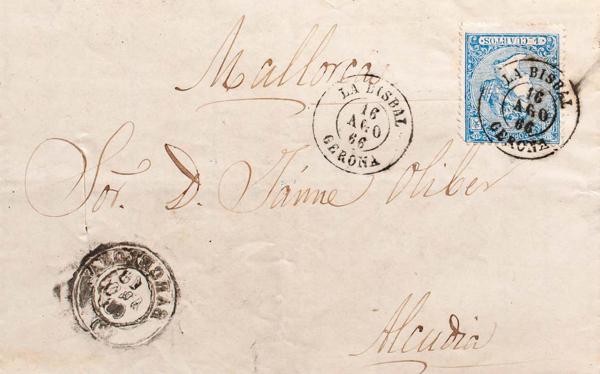 Mallorca
4 CUARTOS
LA BISBAL
16
AGO
66
GERONA
LA BISBAL
16
AGO
66
GERONA
Sor. D. Jaime Oliber
Alcudia